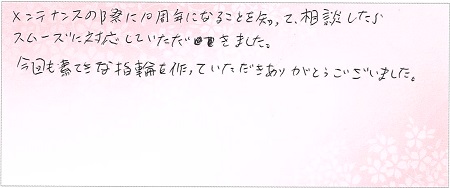 メンテナンスの際に10周年になることを知って、相談したら
スムーズに対応していただきました。
今回も素てきな指輪を作っていただきありがとうございました。